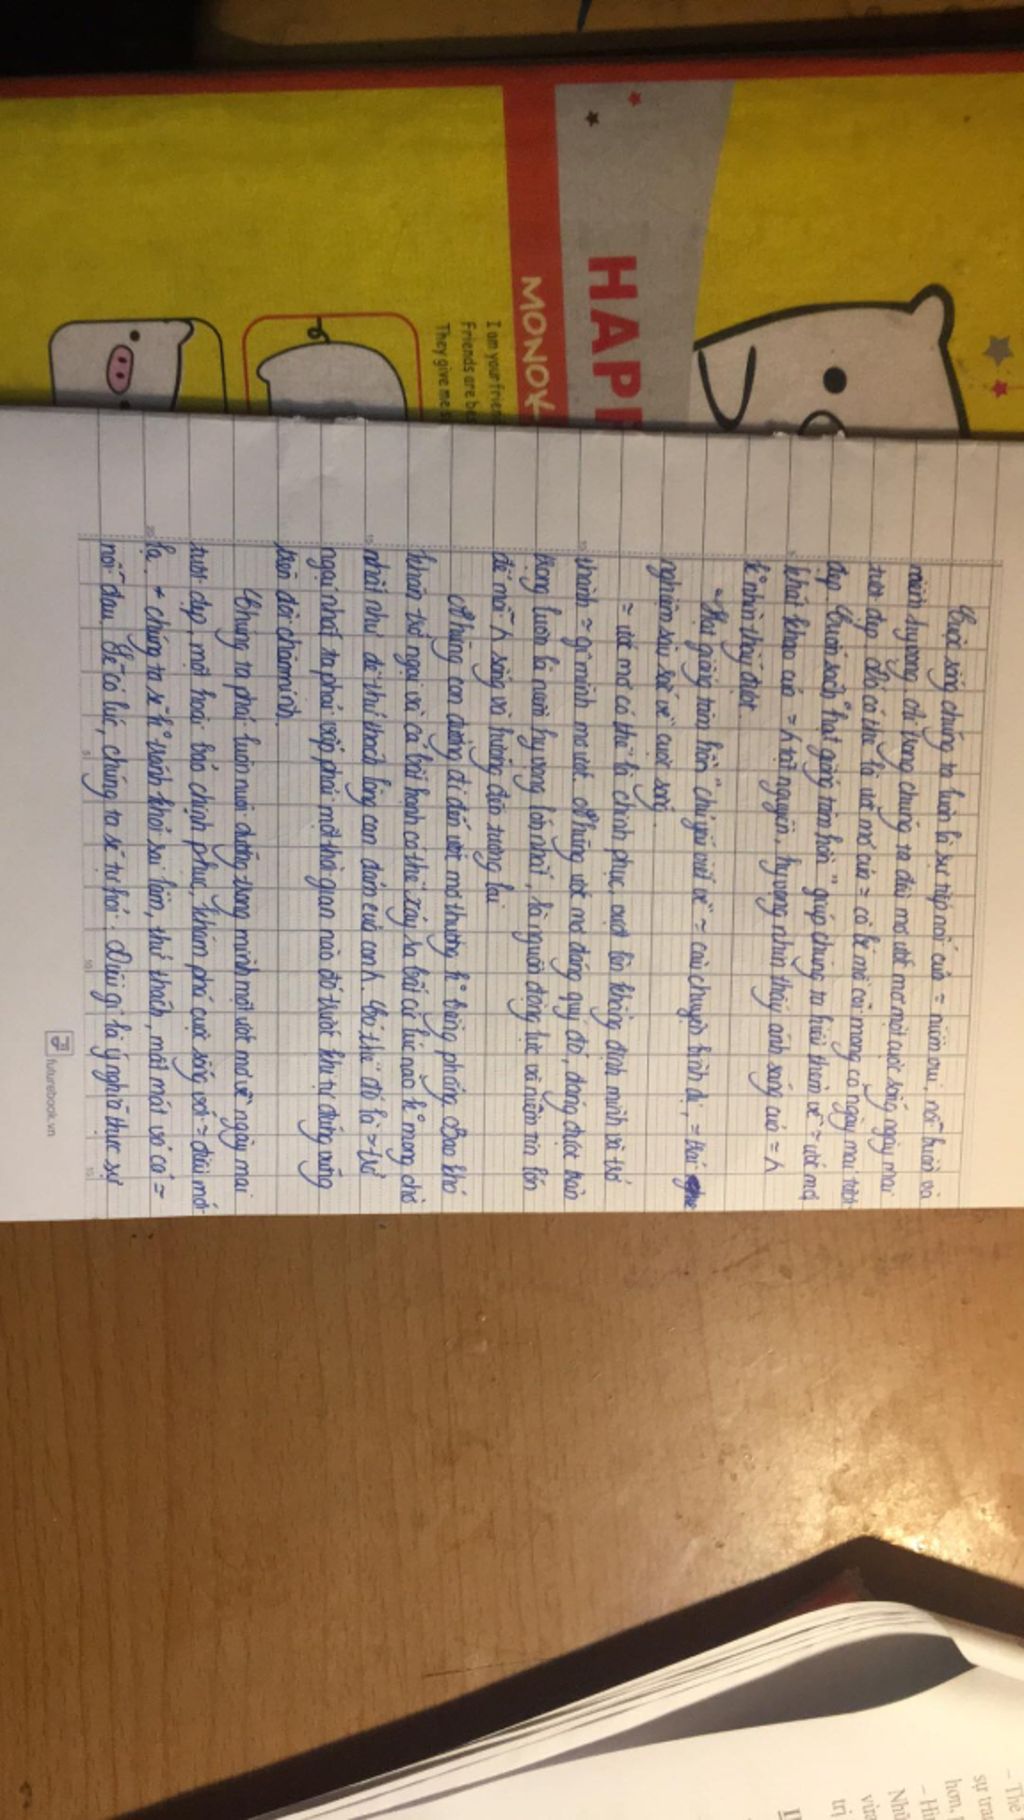 HAPP
MONOK
I am your frien
Friends are be
They give me
Cuộc sống chúng ta luôn là sự tiếp nối của = niềm vui, nỗi buồn và
niềm hy vọng, chi vọng chúng ta đều mơ ước mơ một cuộc sống ngày mai
tươi đẹp. Đó có thể là ước mơ của = cô bé mồ côi mong có ngày mai tươi
đẹp. Cuốn sách "hạt giống tâm hồn" giúp chúng ta hiểu thêm về = ước mơ,
khát khao của = h tật nguyền, hy vọng nhìn thấy ánh sáng của = h
k° nhìn thấy được.
"Hạt giống tâm hồn" chủ yếu viết về = câu chuyện bình dị, = trải
nghiệm sâu sắc về cuộc sống.
= ước mơ có thể là chinh phục, vượt lên khẳng định mình và trở
thành = gì mình mơ ước. Những ước mơ đáng quý đó, đang được
trong luôn là niềm hy vọng lớn nhất, là nguồn động lực và niềm tin lớn
để mỗi h sống và hướng đến tương lai.
Nhưng con đường đi đến ước mơ thường k° bằng phẳng. Bao khó
khăn trở ngại và cả bất hạnh có thể xảy ra bất cứ lúc nào k° mong chờ
nhất như để thử thách lòng can đảm của con h. Có thể đó là = trở
ngại nhất ta phải vấp phải một thời gian nào đó trước khi tự đứng vững
trên đôi chân mình.
Chúng ta phải luôn nuôi dưỡng trong mình một ước mơ về ngày mai
tươi đẹp, một hoài bão chinh phục, khám phá cuộc sống với = điều mới
lạ. chúng ta sẽ k° tránh khỏi sai lầm, thử thách, mất mát và có =
nỗi đau. Để có lúc, chúng ta sẽ tự hỏi: Điều gì là ý nghĩa thực sự
futurebook.vn
sự tra
hơn.
Nhữ
trị